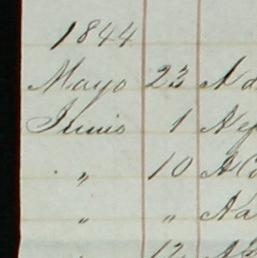 1844
Mayo 23 Ad
Junio 1 Ay
" 10 A Co
" " Na
" 12